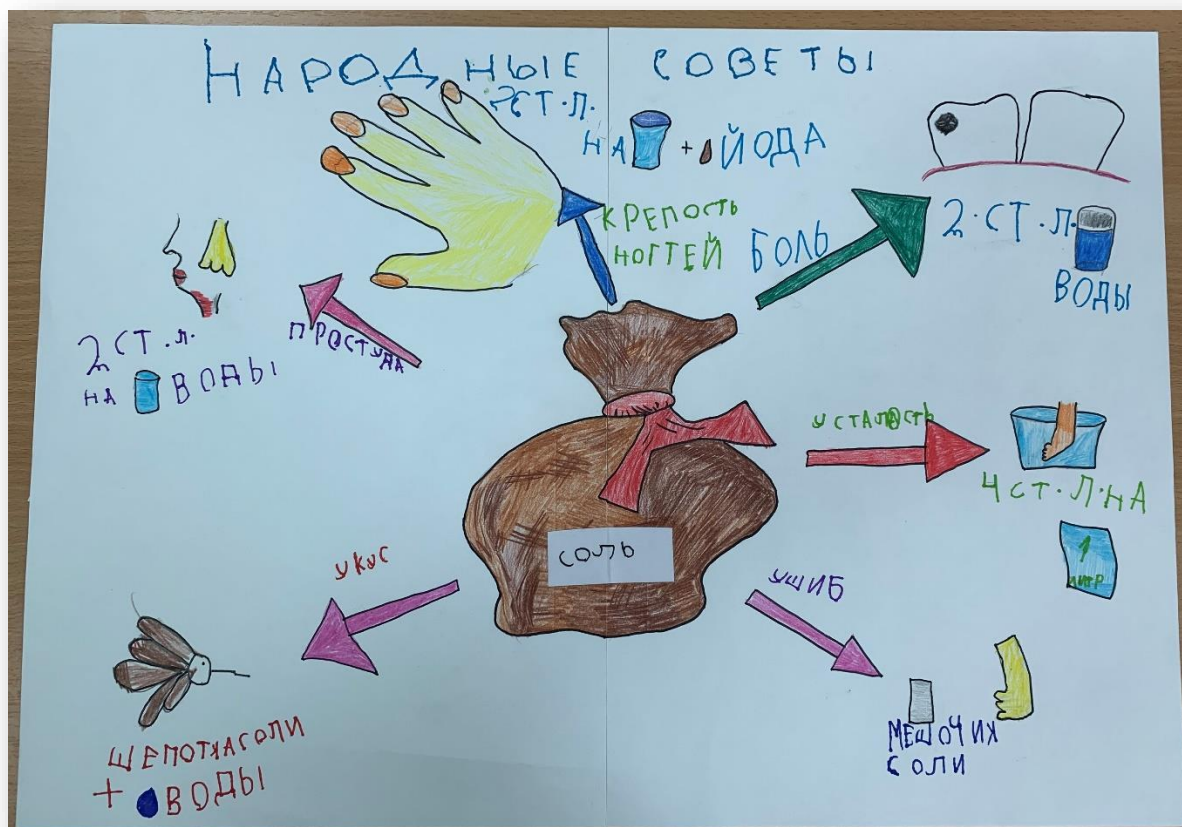 НАРОДНЫЕ СОВЕТЫ
2 СТ.Л.
НА + ЙОДА
КРЕПОСТЬ
НОГТЕЙ
БОЛЬ
2 СТ.Л.
ВОДЫ
ПРОСТУДА
2 СТ.Л.
НА ВОДЫ
УСТАЛОСТЬ
4 СТ.Л.НА
1
ЛИТР
СОЛЬ
УКУС
ЩЕПОТКАСОЛИ
+ ВОДЫ
УШИБ
МЕШОЧИК
СОЛИ